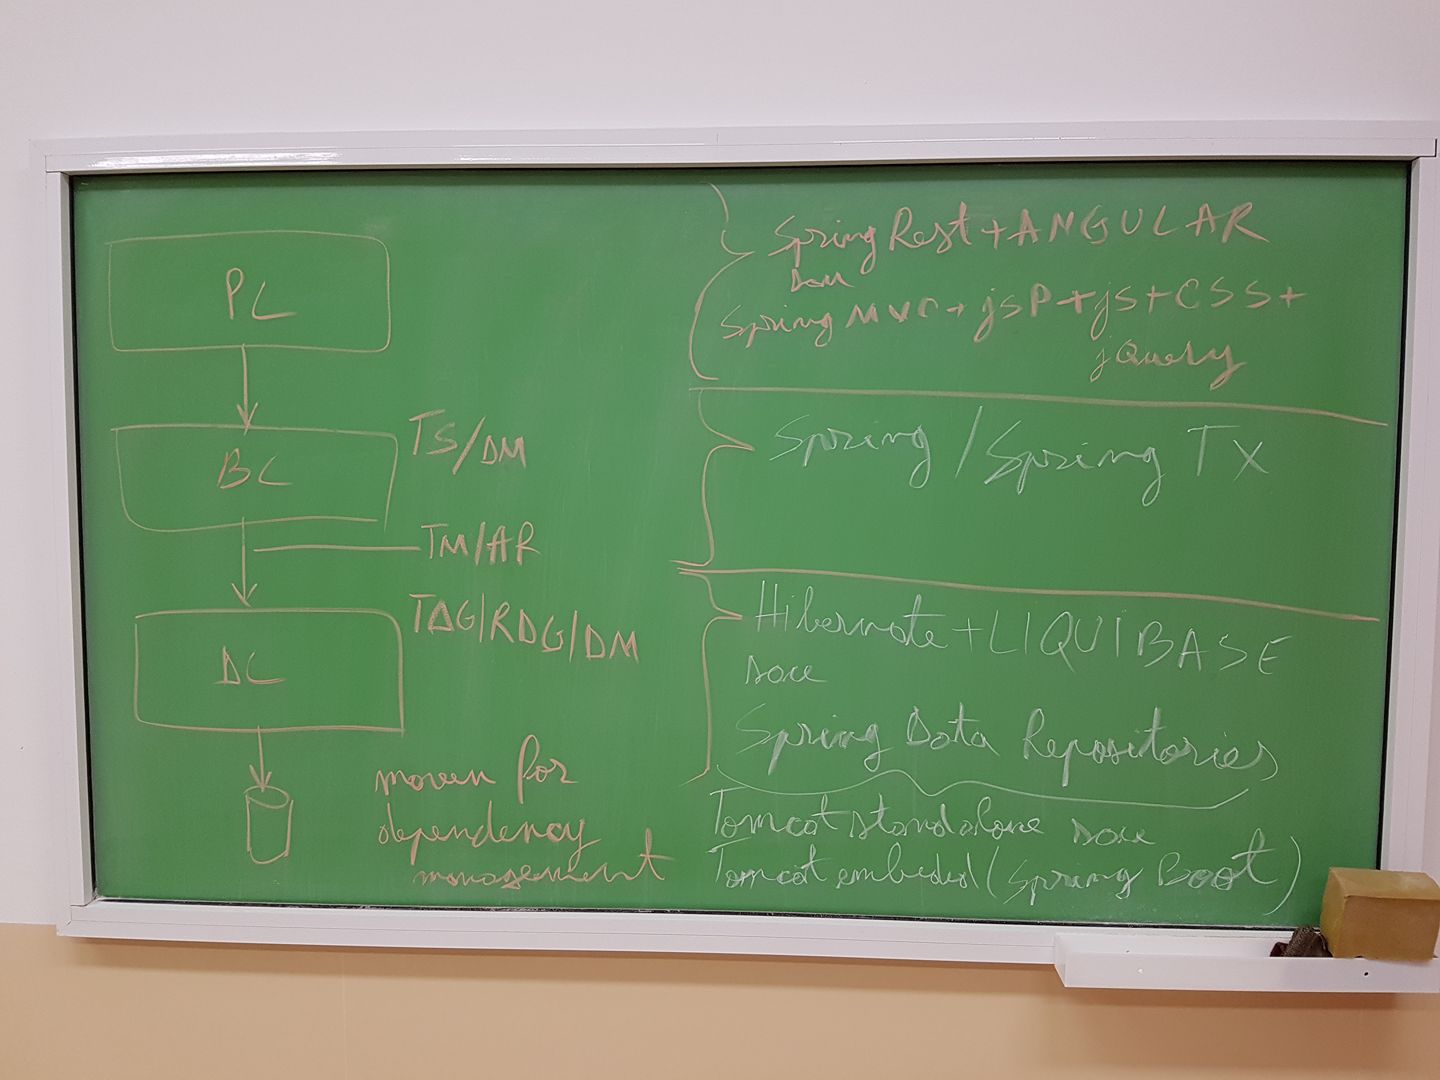 PL
BL
TS/DM
TM/AR
DL
TDG/RDG/DM
maven for
dependency
management
Spring Rest + ANGULAR
sau
Spring MVC + jSP + jS + CSS +
jQuery
Spring / Spring TX
Hibernate + LIQUIBASE
sau
Spring Data Repositories
Tomcat standalone sau
Tomcat embeded (Spring Boot)